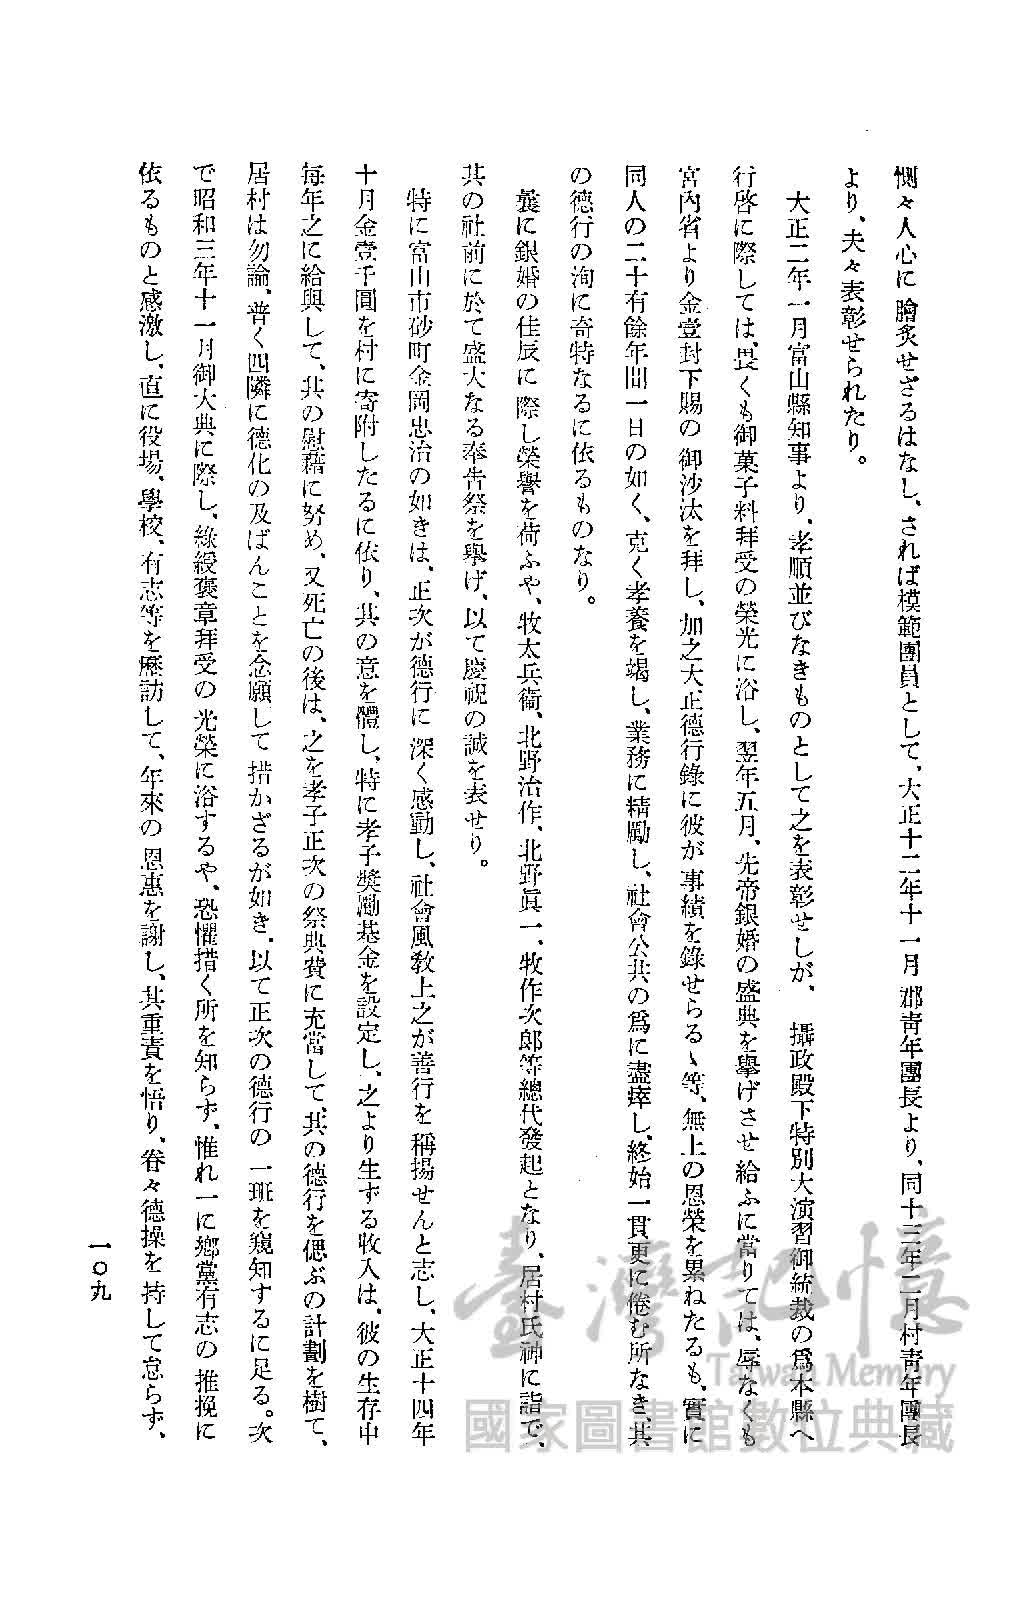 惻々人心に膾炙せざるはなし、されば模範團員として、大正十二年十一月郡靑年團長より、同十三年二月村靑年團長
より、夫々表彰せられたり。
大正二年一月富山縣知事より、孝順並びなきものとして之を表彰せしが、　攝政殿下特別大演習御統裁の爲本縣へ
行啓に際しては、畏くも御菓子料拜受の榮光に浴し、翌年五月、先帝銀婚の盛典を擧げさせ給ふに當りては、辱なくも
宮內省より金壹封下賜の御沙汰を拜し、加之大正德行錄に彼が事績を錄せらるゝ等、無上の恩榮を累ねたるも、實に
同人の二十有餘年間一日の如く、克く孝養を竭し、業務に精勵し、社會公共の爲に盡瘁し、終始一貫更に倦む所なき、其
の德行の洵に奇特なるに依るものなり。
曩に銀婚の佳辰に際し榮譽を荷ふや、牧太兵衞、北野治作、北野眞一、牧作次郞等總代發起となり、居村氏神に詣で、
其の社前に於て盛大なる奉吿祭を擧げ、以て慶祝の誠を表せり。
特に富山市砂町金岡忠治の如きは、正次が德行に深く感動し、社會風敎上之が善行を稱揚せんと志し、大正十四年
十月金壹千圓を村に寄附したるに依り、其の意を體し、特に孝子奬勵基金を設定し、之より生ずる收入は、彼の生存中
每年之に給與して、其の慰藉に努め、又死亡の後は、之を孝子正次の祭典費に充當して、其の德行を偲ぶの計劃を樹て、
居村は勿論、普く四隣に德化の及ばんことを念願して措かざるが如き、以て正次の德行の一班を窺知するに足る。次
で昭和三年十一月御大典に際し、綠綬褒章拜受の光榮に浴するや、恐懼措く所を知らず、惟れ一に鄕黨有志の推挽に
依るものと感激し、直に役場、學校、有志等を歷訪して、年來の恩惠を謝し、其重責を悟り、眷々德操を持して怠らず、
一〇九
臺灣記憶
Taiwan Memory
國家圖書館數位典藏